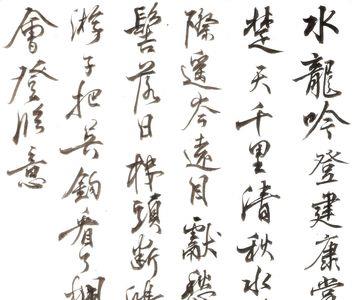 水龍吟登建康賞
楚天千里清秋水
際遙岑遠目獻愁
髻落日樓頭斷鴻
游子把吳鉤看了欄
會登臨意